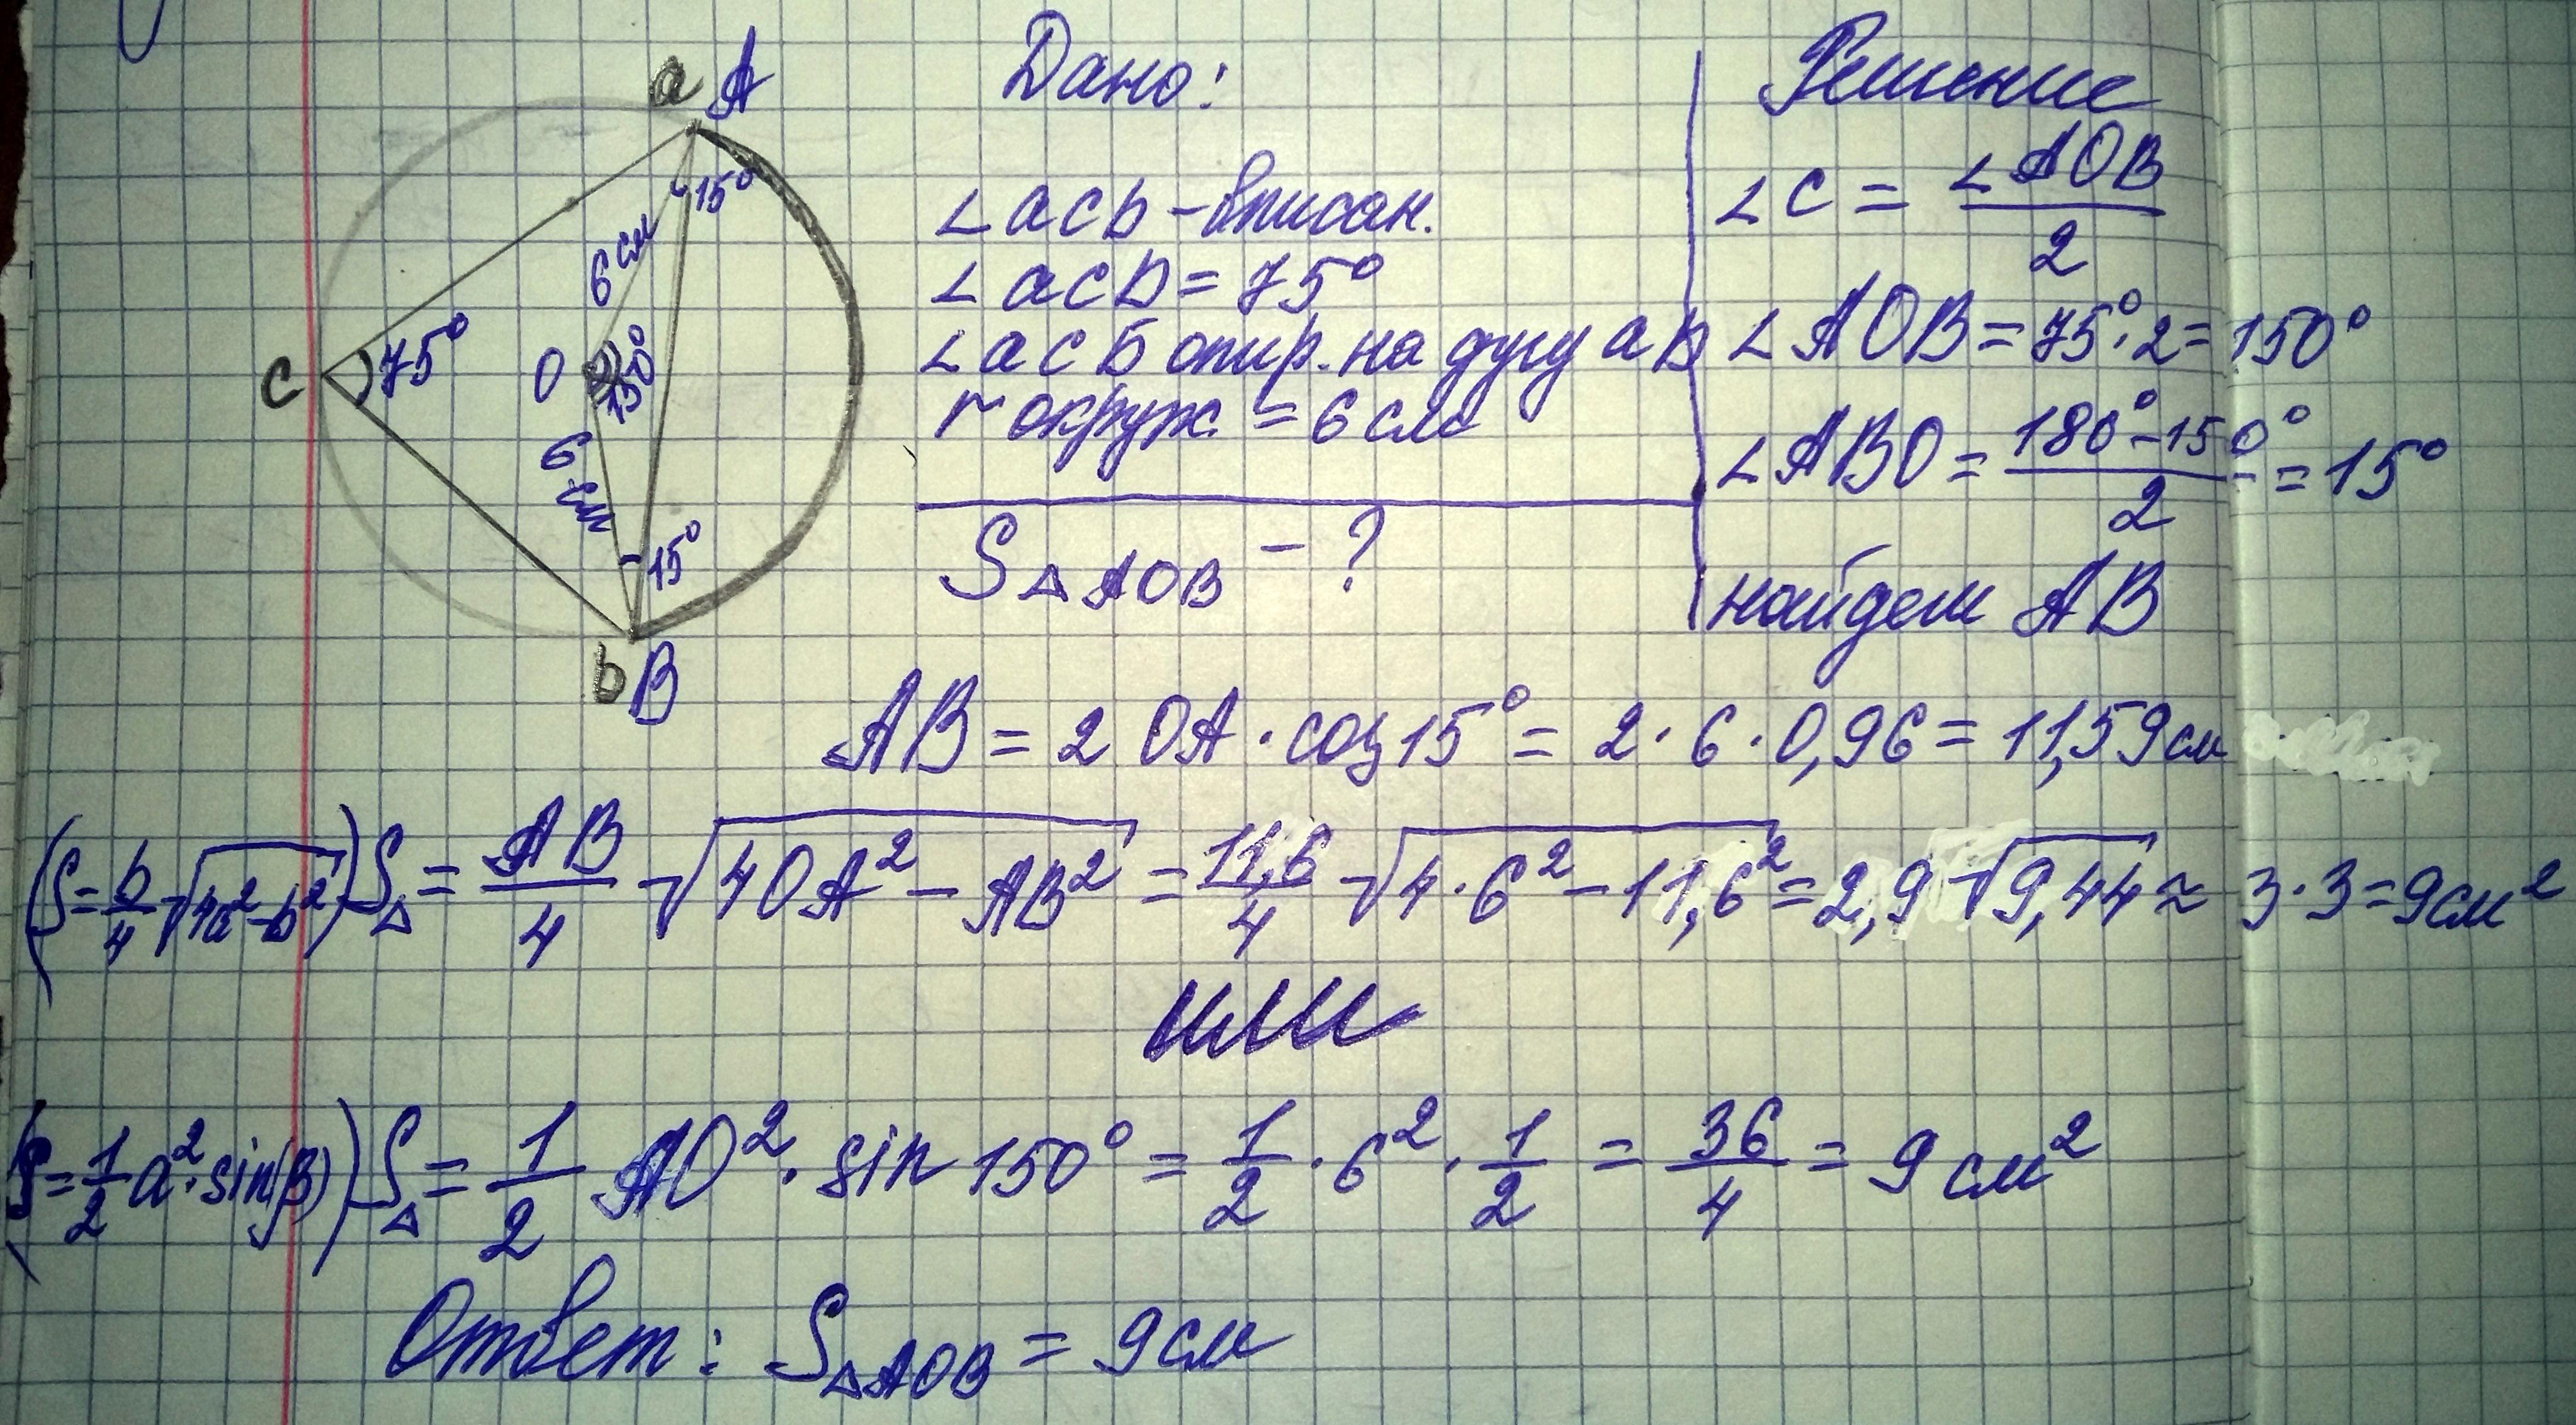 a A
15°
6 см
C 75° O 150°
6 см
15°
b B
Дано:
∠acb - вписан.
∠acb = 75°
∠acb опир. на дугу ab
r окруж. = 6 см
S△AOB - ?
Решение
∠C = ∠AOB / 2
∠AOB = 75°·2 = 150°
∠ABO = (180° - 150°) / 2 = 15°
найдем AB
AB = 2 OA · cos 15° = 2 · 6 · 0,96 = 11,59 см
(S = b/4 √4a² - b²) S△ = AB/4 √4OA² - AB² = 11,6/4 √4·6² - 11,6² = 2,9 √9,44 ≈ 3·3 = 9 см²
или
(S = 1/2 a² · sin(β)) S△ = 1/2 AO² · sin 150° = 1/2 · 6² · 1/2 = 36/4 = 9 см²
Ответ: S△AOB = 9 см